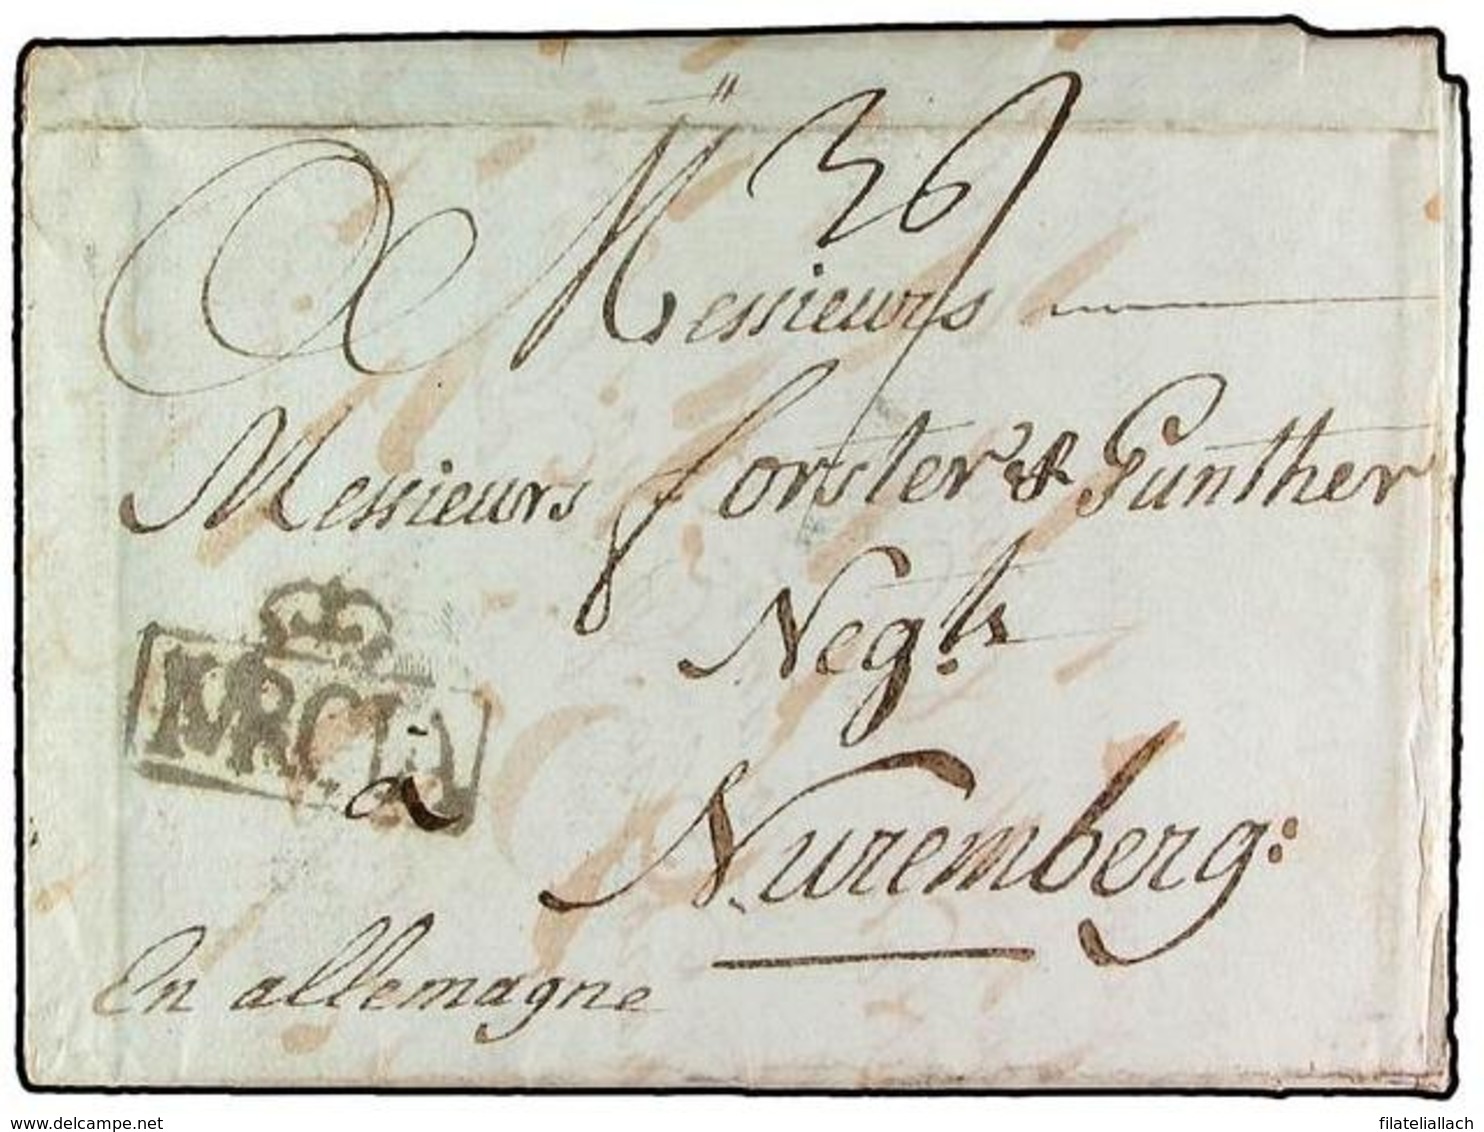 36
A Messieurs
Messieurs Forster & Gunther
Negts
MRCIA
a Nuremberg:
En allemagne
www.delcampe.net
filateliallach